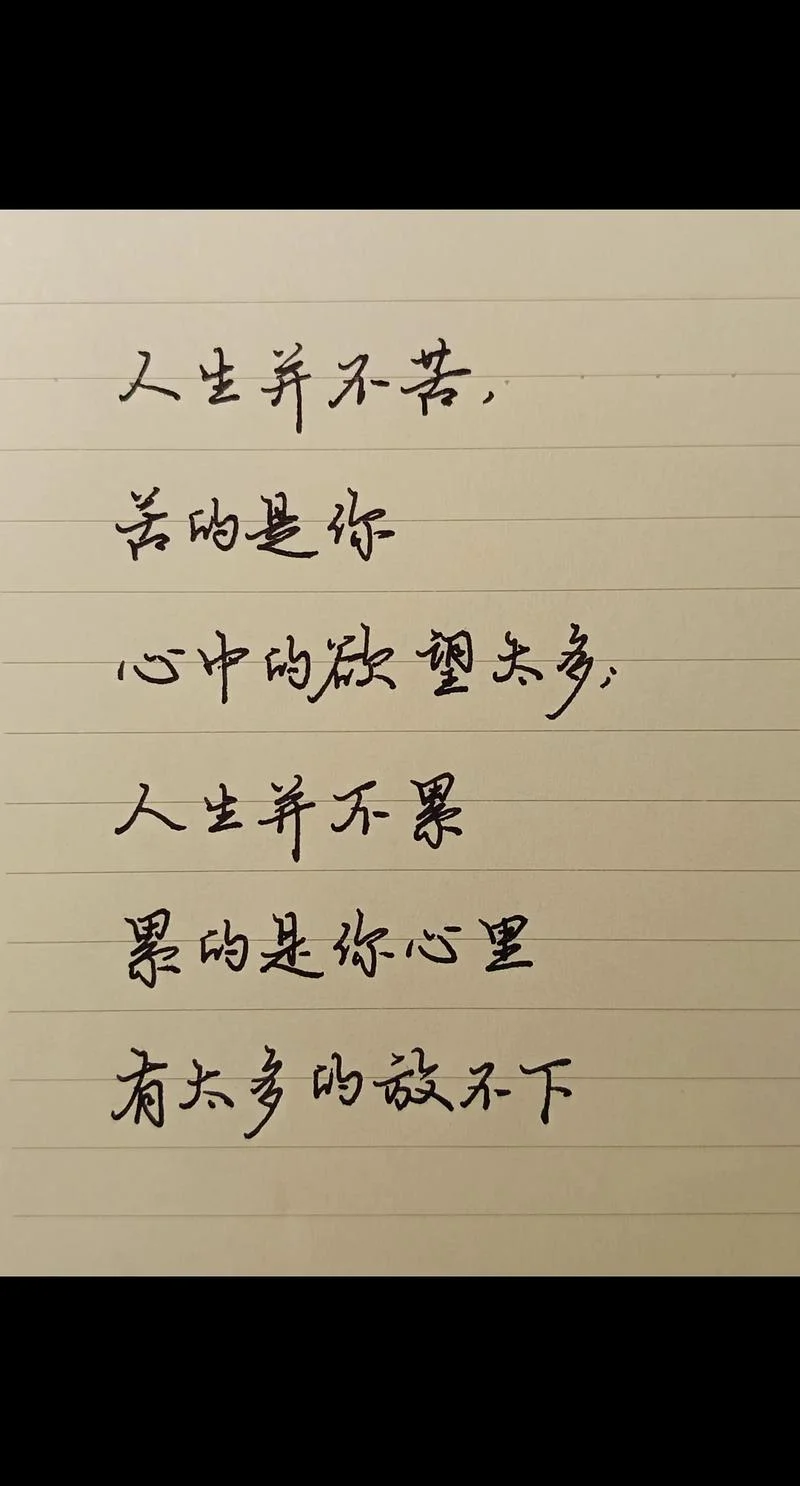 人生并不苦,
苦的是你
心中的欲望太多;
人生并不累
累的是你心里
有太多的放不下